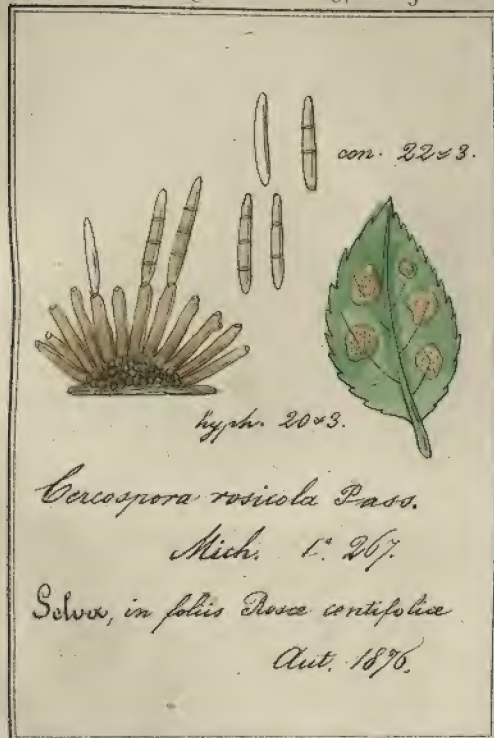 con. 22×3.
hyph. 20×3.
Cercospora rosicola Pass.
Mich. 1.° 267.
Selva, in foliis Rosæ centifoliæ
Aut. 1876.